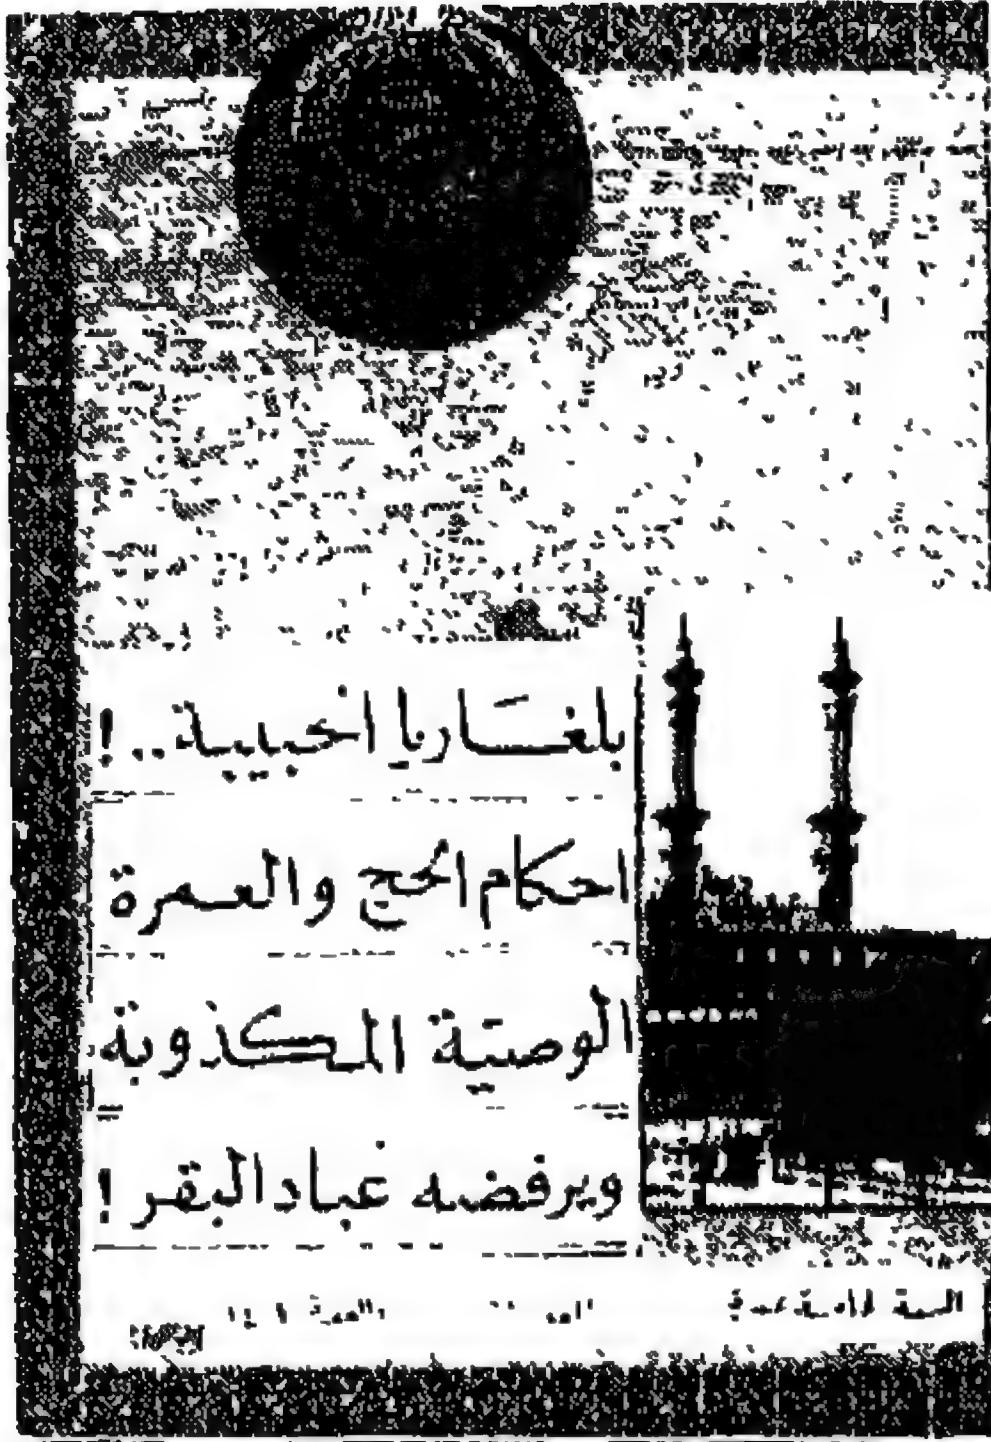 بلغاريا الحبيبة..!
احكام الحج والعمرة
الوصية المكذوبة
ويرفضه عباد البقر!
السنة